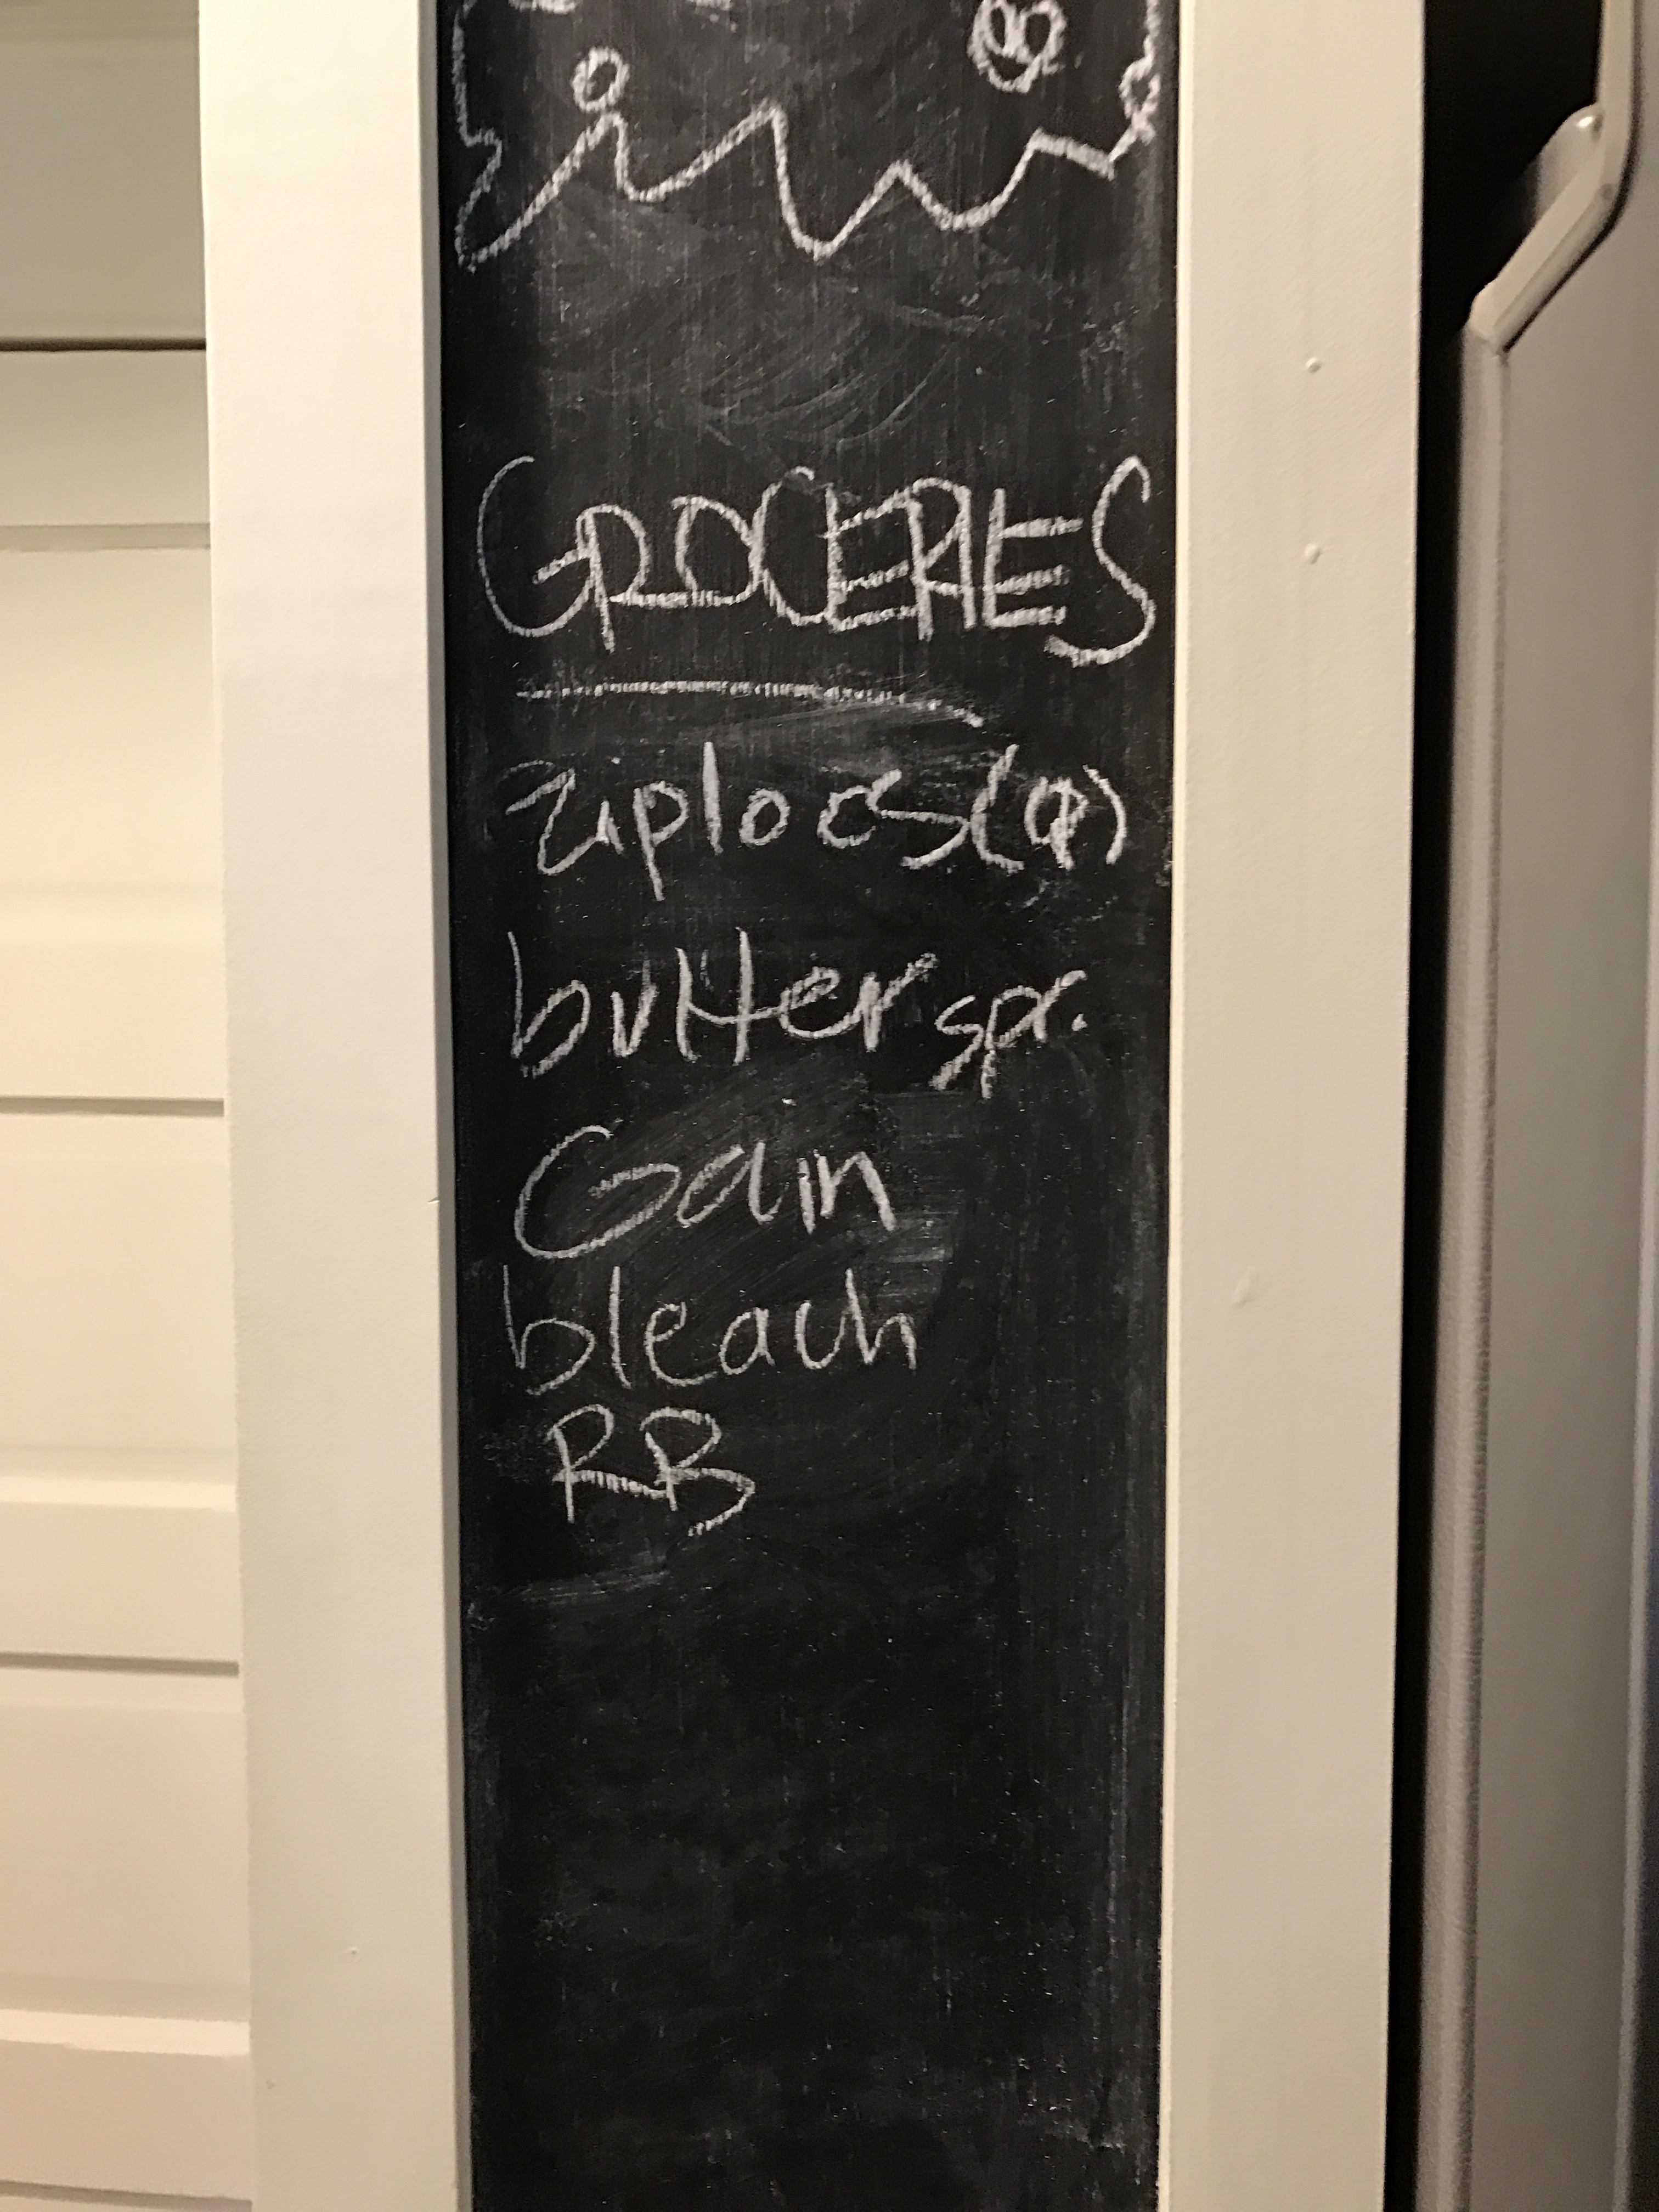 GROCERIES
ziplocs (φ)
butter spr.
Gain
bleach
RB